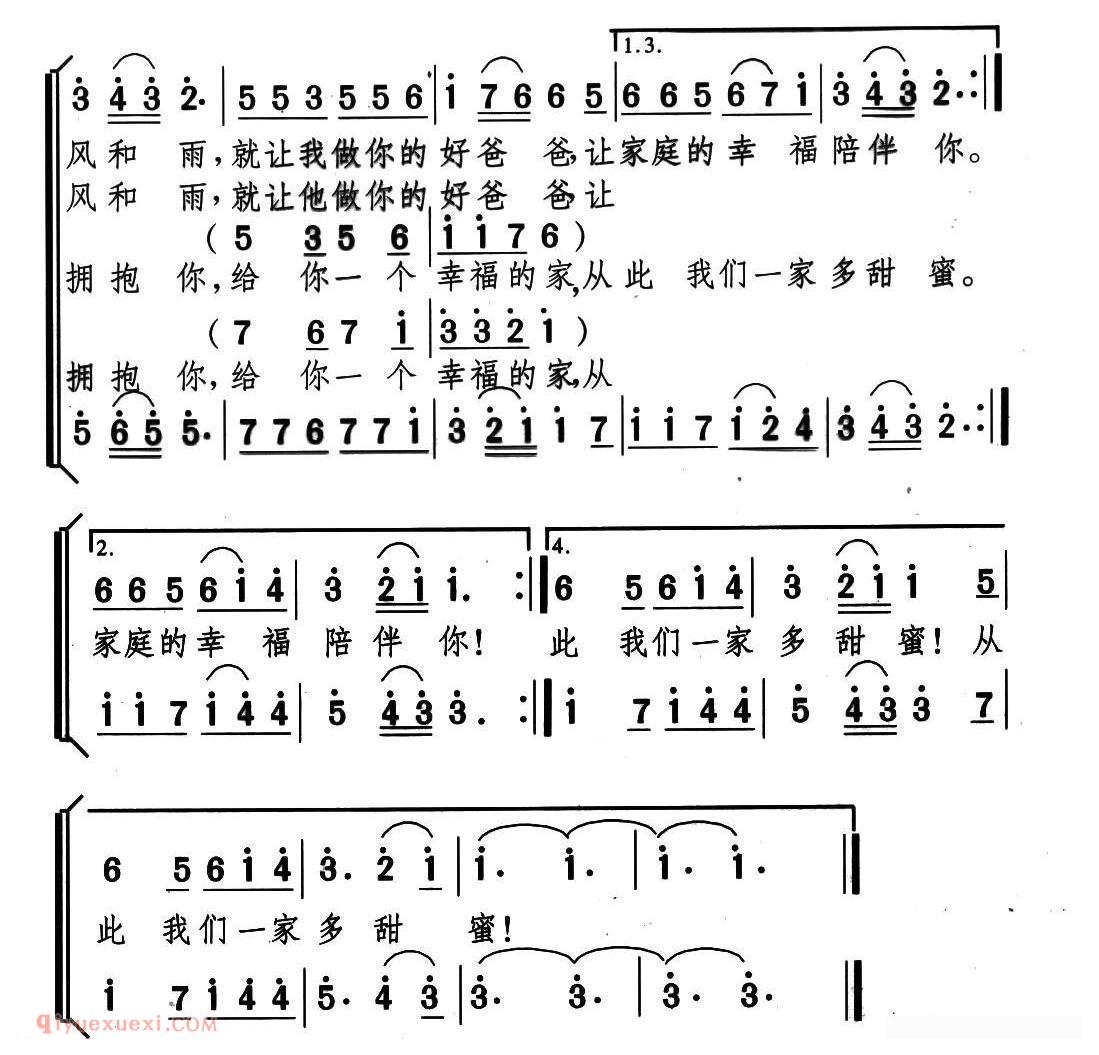 1.3.
3 4 3 2. | 5 5 3 5 5 6 | i 7 6 6 5 | 6 6 5 6 7 i | 3 4 3 2. :|
风和 雨,就让我做你的好爸 爸,让家庭的幸 福陪伴 你。
风和 雨,就让他做你的好爸 爸,让
( 5 3 5 6 | i i 7 6 )
拥抱 你,给 你一个幸福的家,从此 我们一家多甜 蜜。
( 7 6 7 i | 3 3 2 i )
拥抱 你,给 你一个幸福的家,从
5 6 5 5. | 7 7 6 7 7 i | 3 2 i i 7 | i i 7 i 2 4 | 3 4 3 2. :|
2. 4.
6 6 5 6 i 4 | 3 2 i i. :| 6 5 6 i 4 | 3 2 i i 5 |
家庭的幸 福 陪伴 你! 此 我们一家多 甜 蜜!从
i i 7 i 4 4 | 5 4 3 3. :| i 7 i 4 4 | 5 4 3 3 7 |
6 5 6 i 4 | 3. 2 i | i. i. | i. i. ‖
此 我们一家多 甜 蜜!
i 7 i 4 4 | 5. 4 3 | 3. 3. | 3. 3. ‖
qiyuexuexi.COM